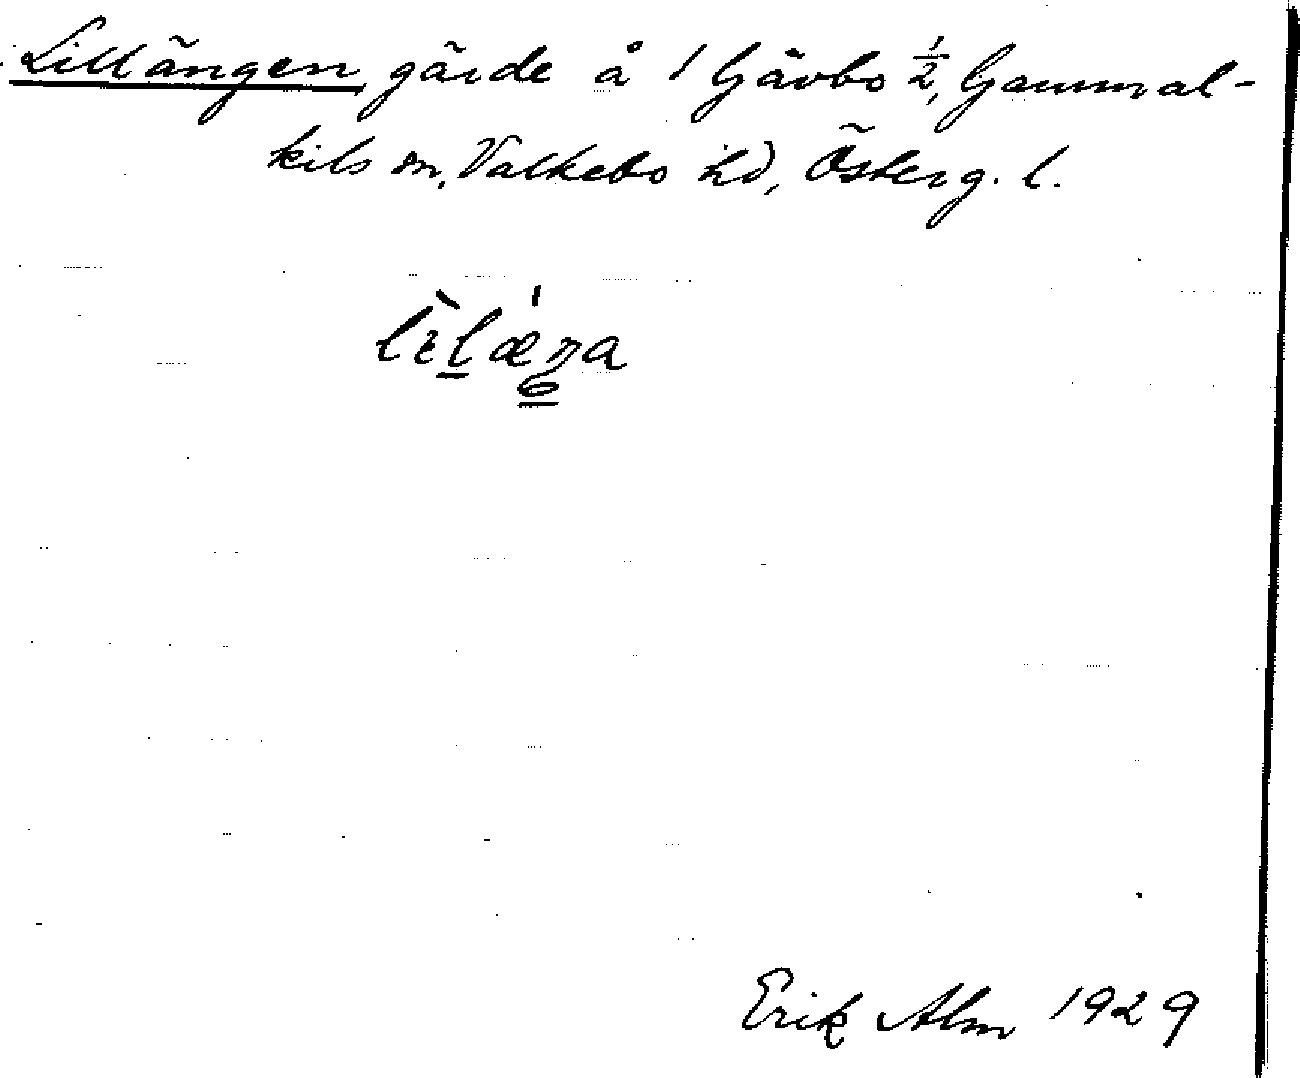 Lillängen gärde å 1 Gävbo 1/2, Gammal-
kils sn, Valkebo hd, Österg. l.
Erik Alm 1929